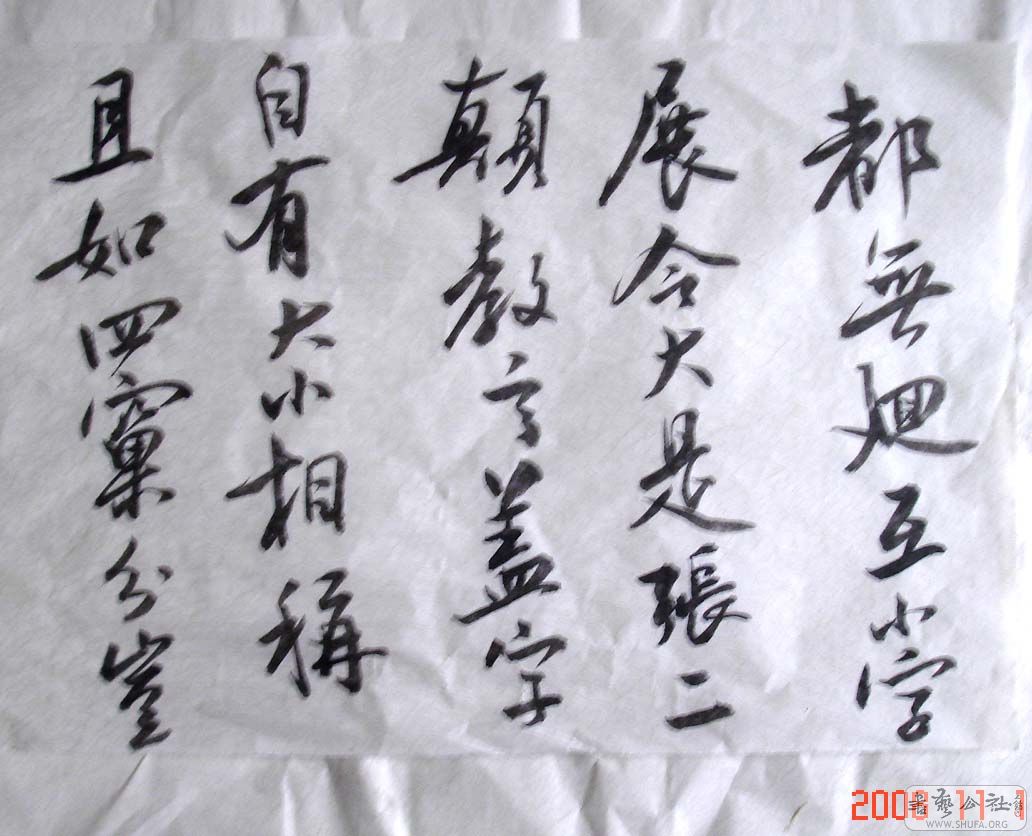 都無迴互小字
展令大是張二
顛教言盖字
自有大小相稱
且如四窠分豈
藝公社
WWW.SHUFA.ORG